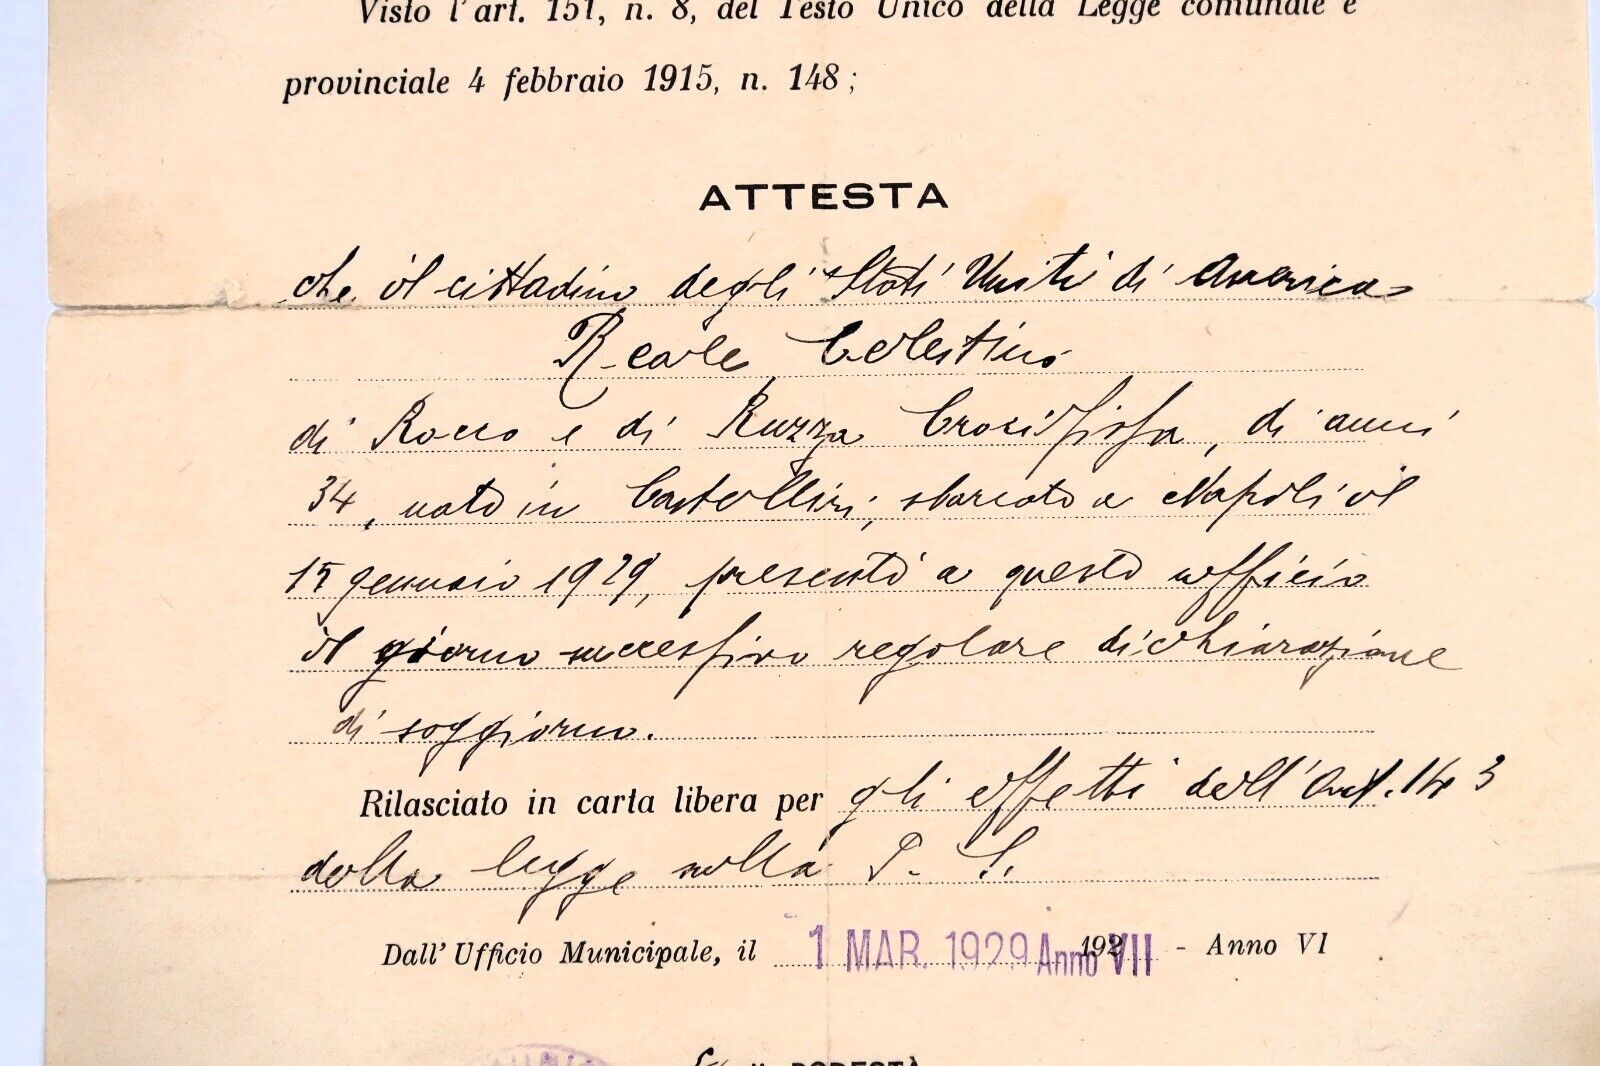 Visto l'art. 151, n. 8, del Testo Unico della Legge comunale e
provinciale 4 febbraio 1915, n. 148;
ATTESTA
che il cittadino degli Stati Uniti di America
Reale Celestino
di Rocco e di Ruzza Crocifissa, di anni
34, nato in Castelliri, sbarcato a Napoli il
15 gennaio 1929, presentò a questo ufficio
il giorno successivo regolare dichiarazione
di soggiorno.
Rilasciato in carta libera per gli effetti dell'Art. 143
della legge sulla P. S.
Dall'Ufficio Municipale, il 1 MAR. 1929 Anno VII 192 - Anno VI
IL PODESTÀ